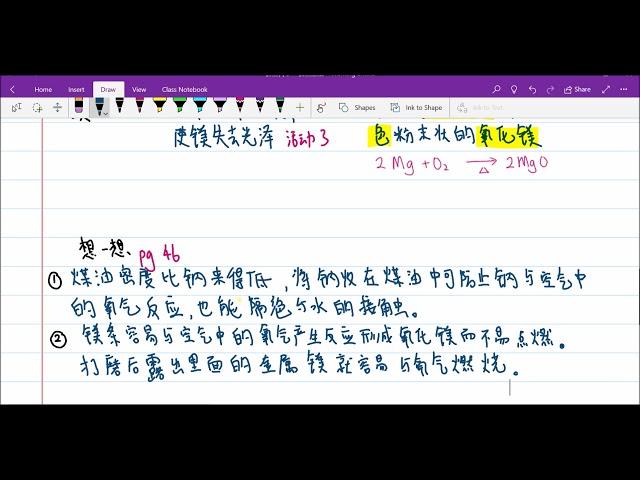 Home Insert Draw View Class Notebook Share
Shapes Ink to Shape Ink to Text
使镁失去光泽 活动3 色粉末状的氧化镁
2 Mg + O₂ → 2 MgO
△
想一想 pg 46
① 煤油密度比钠来得低，将钠收在煤油中可防止钠与空气中
的氧气反应，也能隔绝与水的接触。
② 镁条容易与空气中的氧气产生反应形成氧化镁而不易点燃。
打磨后露出里面的金属镁就容易与氧气燃烧。